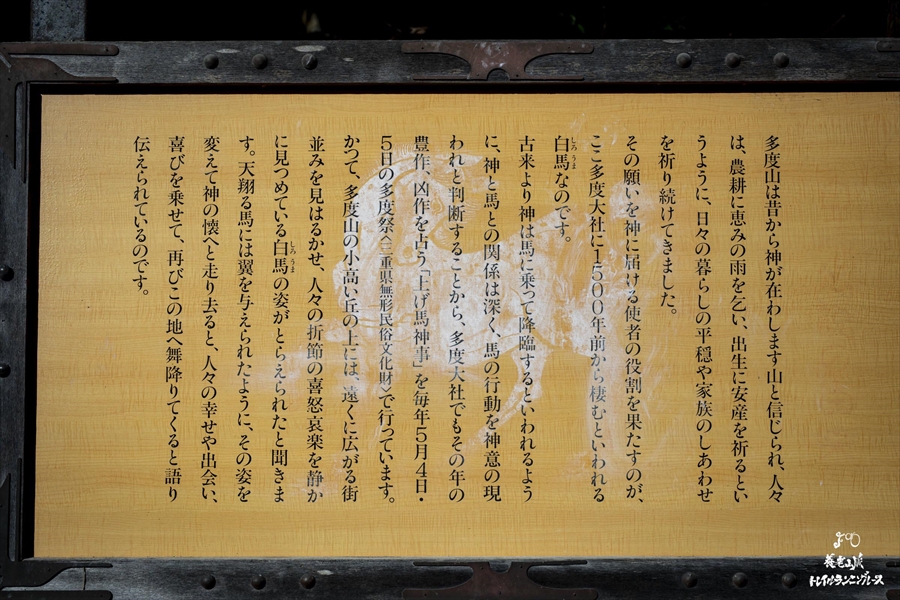 多度山は昔から神が在わします山と信じられ、人々
は、農耕に恵みの雨を乞い、出生に安産を祈るとい
うように、日々の暮らしの平穏や家族のしあわせ
を祈り続けてきました。
その願いを神に届ける使者の役割を果たすのが、
ここ多度大社に1500年前から棲むといわれる
白馬なのです。
しろうま
古来より神は馬に乗って降臨するといわれるよう
に、神と馬との関係は深く、馬の行動を神意の現
われと判断することから、多度大社でもその年の
豊作、凶作を占う「上げ馬神事」を毎年5月4日・
5日の多度祭〈三重県無形民俗文化財〉で行っています。
かつて、多度山の小高い丘の上には、遠くに広がる街
並みを見はるかせ、人々の折節の喜怒哀楽を静か
に見つめている白馬の姿がとらえられたと聞きま
しろうま
す。天翔る馬には翼を与えられたように、その姿を
変えて神の懐へと走り去ると、人々の幸せや出会い、
喜びを乗せて、再びこの地へ舞降りてくると語り
伝えられているのです。
養老山脈
トレイルランニングレース